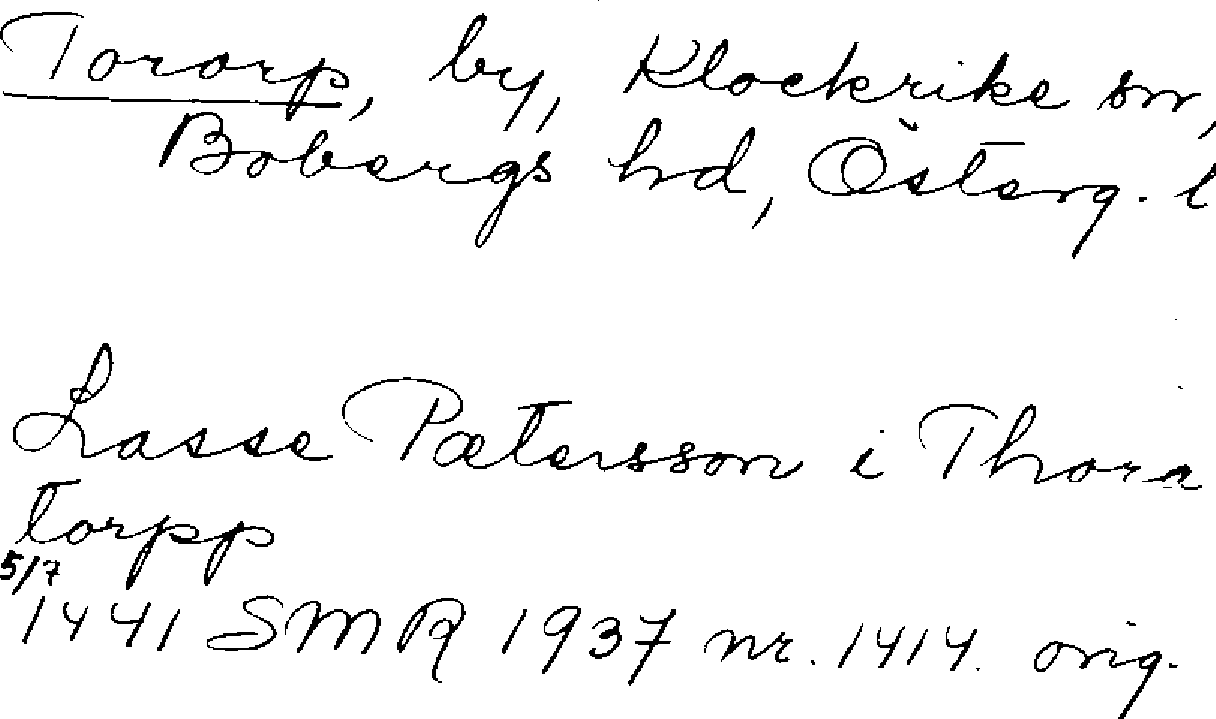 Tororp, by, Klockrike sn,
Bobergs hd, Österg. l
Lasse Pætersson i Thora
torpp
5/7
1441 SMR 1937 nr. 1414. orig.